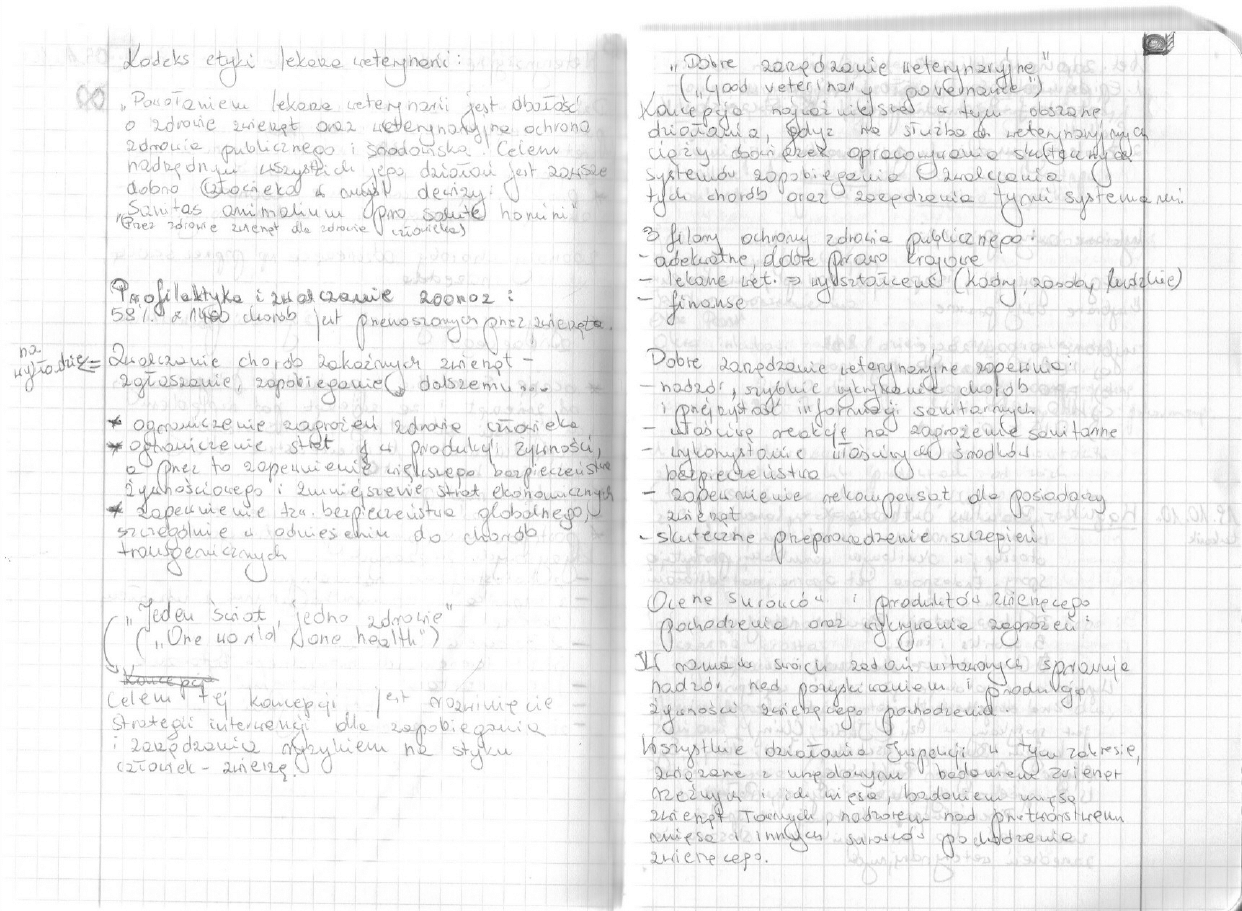 Kodeks etyki lekarza weterynarii:
„Powołaniem lekarza weterynarii jest dbałość
o zdrowie zwierząt oraz weterynaryjna ochrona
zdrowia publicznego i środowiska. Celem
nadrzędnym wszystkich jego działań jest zawsze
dobro człowieka w myśl dewizy:
Sanitas animalium pro salute homini"
(Przez zdrowie zwierząt dla zdrowia człowieka)
Profilaktyka i zwalczanie zoonoz:
58% z 1400 chorób jest przenoszonych przez zwierzęta.
na
wykładzie =
Zwalczanie chorób zakaźnych zwierząt -
zgłaszanie, zapobieganie dalszemu ...
* ograniczenie zagrożeń zdrowia człowieka
* ograniczenie strat w produkcji żywności,
a przez to zapewnienie większego bezpieczeństwa
żywnościowego i zmniejszenie strat ekonomicznych
* zapewnienie tzw. bezpieczeństwa globalnego,
szczególnie w odniesieniu do chorób
transgenicznych
„Jeden świat, jedno zdrowie"
(„One world, one health")
Koncepcja
Celem tej koncepcji jest rozwinięcie
strategii interwencji dla zapobiegania
i zarządzania ryzykiem na styku
człowiek - zwierzę.
„Dobre zarządzanie weterynaryjne"
(„Good veterinary governance")
Koncepcja najważniejsza w tym obszarze
działania, gdyż na służbach weterynaryjnych
ciąży obowiązek opracowywania skutecznych
systemów zapobiegania i zwalczania
tych chorób oraz zarządzania tymi systemami.
3 filary ochrony zdrowia publicznego:
- adekwatne, dobre prawo krajowe
- lekarze wet. ⇒ wykształceni (kadry, zasoby ludzkie)
- finanse
Dobre zarządzanie weterynaryjne zapewnia:
- nadzór, szybkie wykrywanie chorób
i przejrzystość informacji sanitarnych
- właściwą reakcję na zagrożenie sanitarne
- wykorzystanie właściwych środków
bezpieczeństwa
- zapewnienie rekompensat dla posiadaczy
zwierząt
- skuteczne przeprowadzenie szczepień
Ocena surowców i produktów zwierzęcego
pochodzenia oraz wykrywanie zagrożeń:
IW w ramach swoich zadań ustawowych sprawuje
nadzór nad pozyskiwaniem i produkcją
żywności zwierzęcego pochodzenia.
Wszystkie działania Inspekcji w tym zakresie,
związane z urzędowym badaniem zwierząt
rzeźnych i ich mięsa, badaniem mięsa
zwierząt łownych, nadzorem nad przetwórstwem
mięsa i innych surowców pochodzenia
zwierzęcego.
19.10.10.